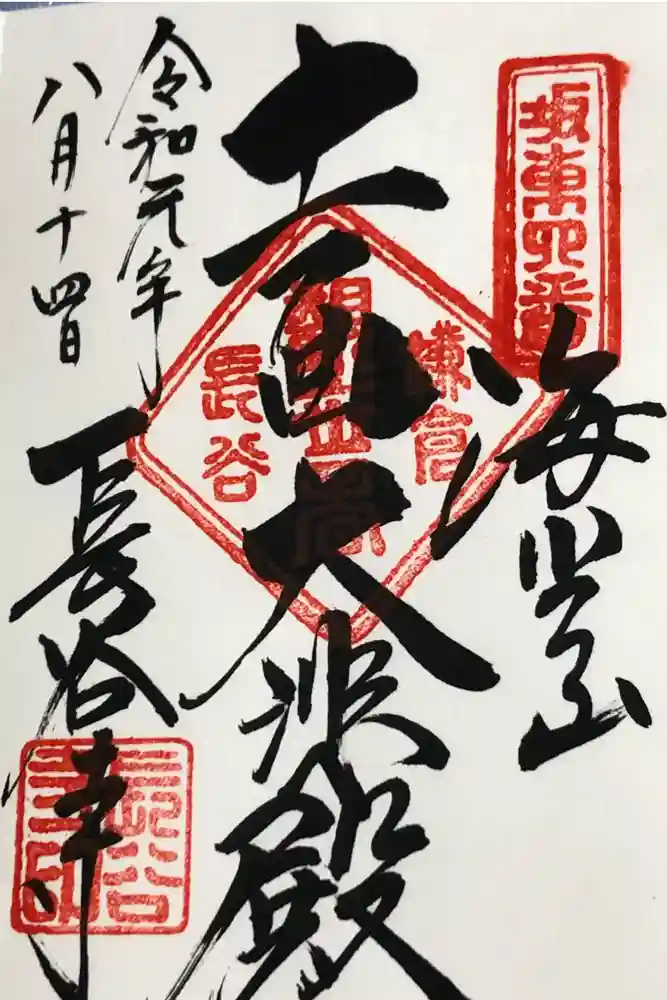 坂東四番
海光山
鎌倉
長谷
十一面大悲殿
令和元年
八月十四日
長谷寺
長谷寺印